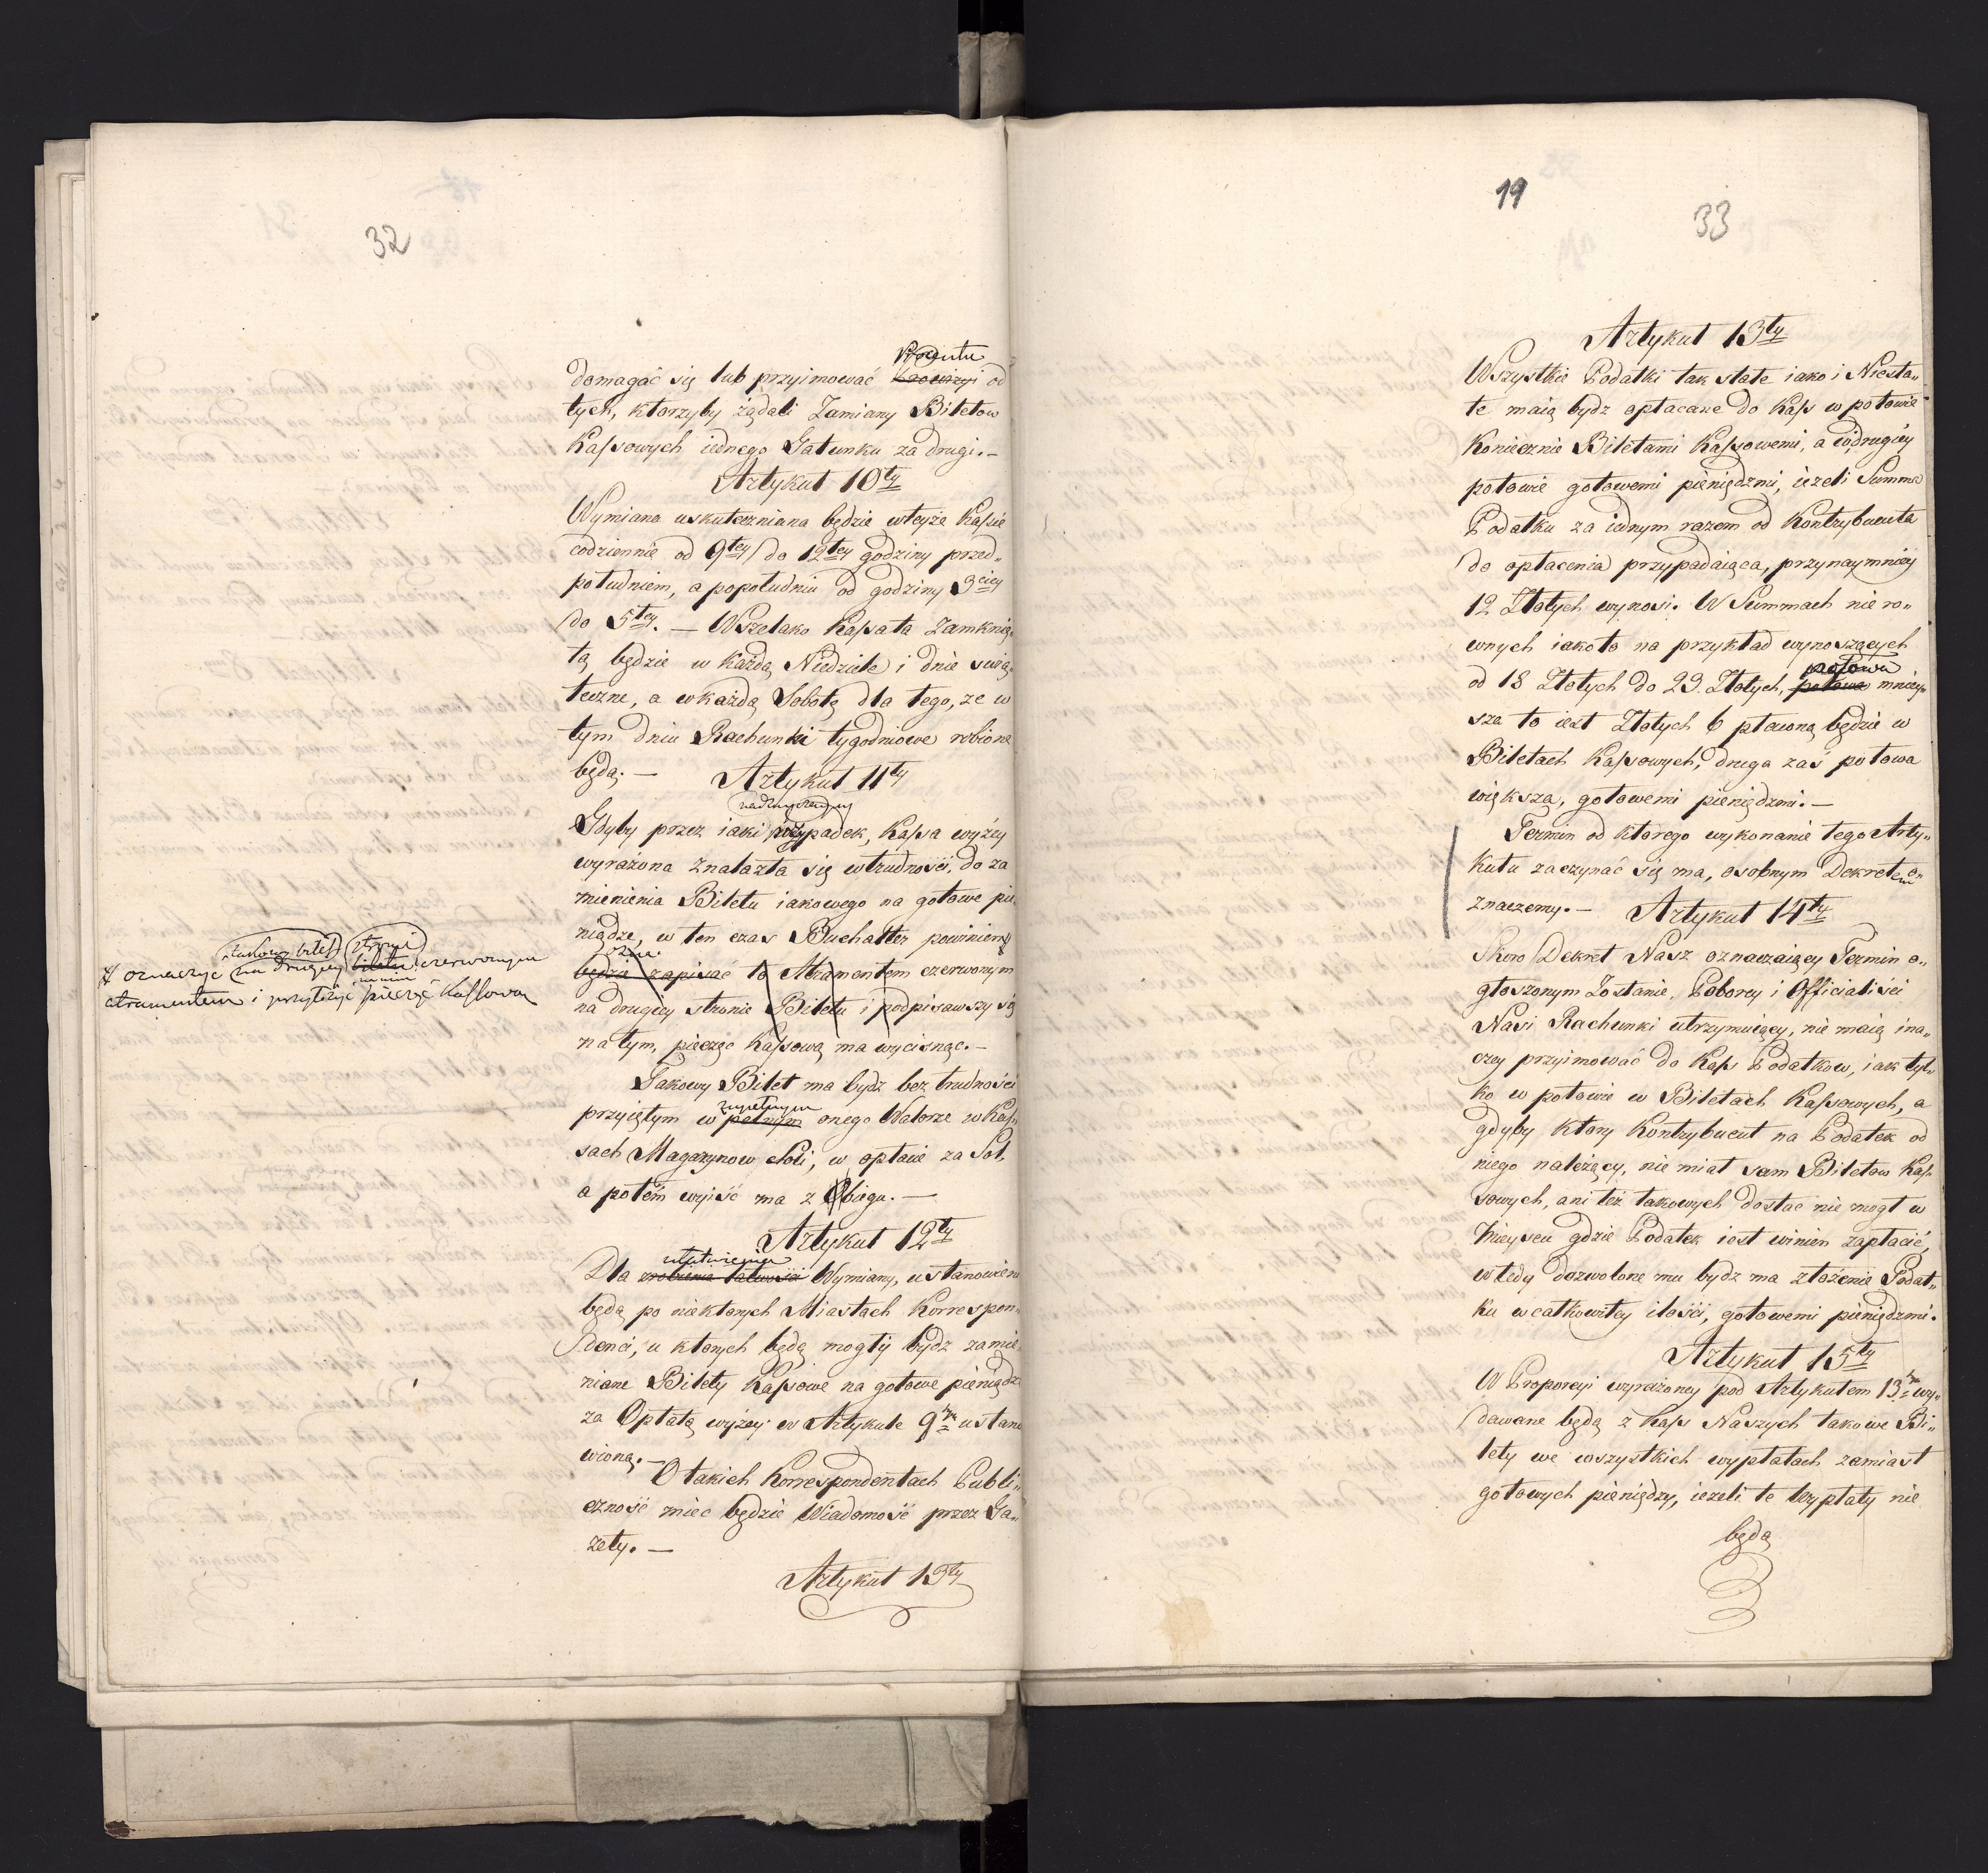 32
Procentu
domagać się lub przyimować Prowizyi od
tych, ktorzyby żądali Zamiany Biletow
Kassowych iednego Gatunku za drugi. —
Artykuł 10ty
Wymiana uskuteczniana będzie w teyże Kassie
codziennie od 9tey do 12tey godziny przed„
południem, a popołudniu od godziny 3ciey
do 5tey. — Wszelako Kassa ta Zamknię„
tą będzie w każdą Niedziele i dnie świą„
teczne, a w każdą Sobotę dla tego, że w
tym dniu Rachunki tygodniowe robione
będą. — Artykuł 11ty
nadzwyczayny
Gdyby przez iaki przypadek, Kassa wyżey
wyrażona znalazła się w trudności, do za
mienienia Biletu iakowego na gotowe pie„
niądze, w ten czas Buchalter powinien
będzie zapisać to Atramentem czerwonym
na drugiey stronie Biletu i podpisawszy się
na tym, pieczęc Kassową ma wycisnąc. —
takowy bilet stronie
oznaczyc na drugiey biletu czerwonym
atramentem i przyłożyć pieczęć Kassową
Takowy Bilet ma bydz bez trudności
zupełnym
przyiętym w pełnym onego Walorze w Kas„
sach Magazynow Soli, w opłacie za Sol,
a potem wyiść ma z Obiegu. —
Artykuł 12ty
ułatwienia
Dla zrobienia łatwości Wymiany, ustanowieni
będą po niektorych Miastach Korrespon„
denci, u ktorych będą mogły bydz zamie„
niane Bilety Kassowe na gotowe pieniądze
za Opłatą wyżey w Artykule 9m ustano
wioną. —
O takich Korrespondentach Publi„
czność miec będzie Wiadomość przez Ga„
zety. —
Artykuł 13ty
19
33
Artykuł 13ty
Wszystkie Podatki tak stałe iako i Niesta„
łe maią bydz opłacane do Kass w połowie
Koniecznie Biletami Kassowemi, a w drugiey
połowie gotowemi pieniędzmi, ieżeli Summa
Podatku za iednym razem od Kontrybuenta
do opłacenia przypadaiąca, przynaymniey
12 Złotych wynosi. W Summach nie ro„
wnych iakoto na przykład wynoszących
połowa
od 18 Złotych do 23. Złotych, połowa mniey„
sza to iest Złotych 6 płaconą będzie w
Biletach Kassowych, druga zaś połowa
większa, gotowemi pieniędzmi. —
Termin od ktorego wykonanie tego Arty„
kułu zaczynać się ma, osobnym Dekretem o„
znaczemy. — Artykuł 14ty
Skoro Dekret Nasz oznaczaiący Termin o„
głoszonym Zostanie, Poborcy i Officialiści
Nasi Rachunki utrzymuiący, nie maią ina„
czey przyimować do Kass Podatkow, iak tyl„
ko w połowie w Biletach Kassowych, a
gdyby ktory Kontrybuent na Podatek od
niego należący, nie miał sam Biletow Kas„
sowych, ani też takowych dostac nie mogł w
mieyscu gdzie Podatek iest winien zapłacić,
wtedy dozwolone mu bydz ma złożenie Podat„
ku w całkowitey ilości, gotowemi pieniędzmi.
Artykuł 15ty
W Proporcyi wyrażoney pod Artykułem 13m wy„
dawane będą z Kass Naszych takowe Bi„
lety we wszystkich wypłatach zamiast
gotowych pieniędzy, ieżeli te Wypłaty nie
będą